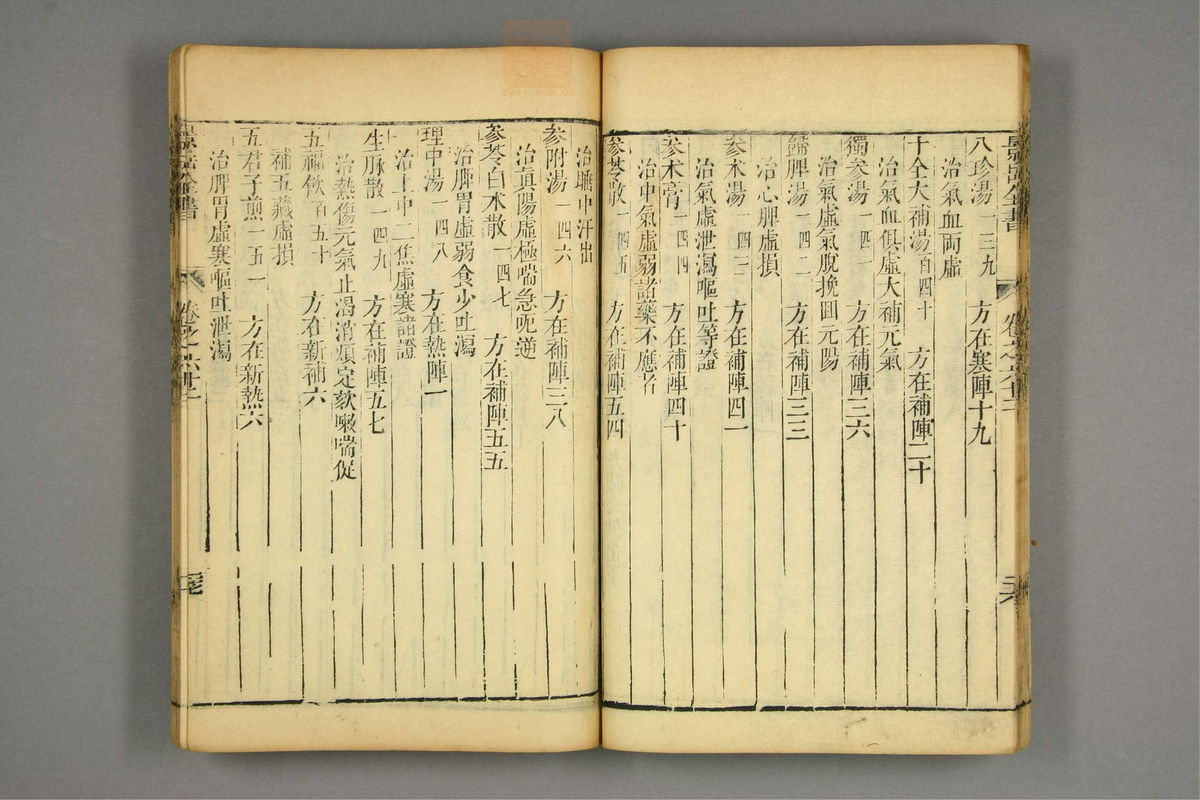 八珍湯一三九　方在寒陣十九
治氣血兩虛
十全大補湯百四十　方在補陣二十
治氣血俱虛大補元氣
獨參湯一四一　方在補陣三六
治氣虛氣脫挽回元陽
歸脾湯一四二　方在補陣三三
治心脾虛損
參朮湯一四三　方在補陣四一
治氣虛泄瀉嘔吐等證
參朮膏一四四　方在補陣四十
治中氣虛弱諸藥不應者
參苓散一四五　方在補陣五四
治睡中汗出
參附湯一四六　方在補陣三八
治眞陽虛極喘急呃逆
參苓白朮散一四七　方在補陣五五
治脾胃虛弱食少吐瀉
理中湯一四八　方在熱陣一
治上中二焦虛寒諸證
生脉散一四九　方在補陣五七
治熱傷元氣止渴消煩定欬嗽喘促
五福飲百五十　方在新補六
補五臟虛損
五君子煎一五一　方在新熱六
治脾胃虛寒嘔吐泄瀉